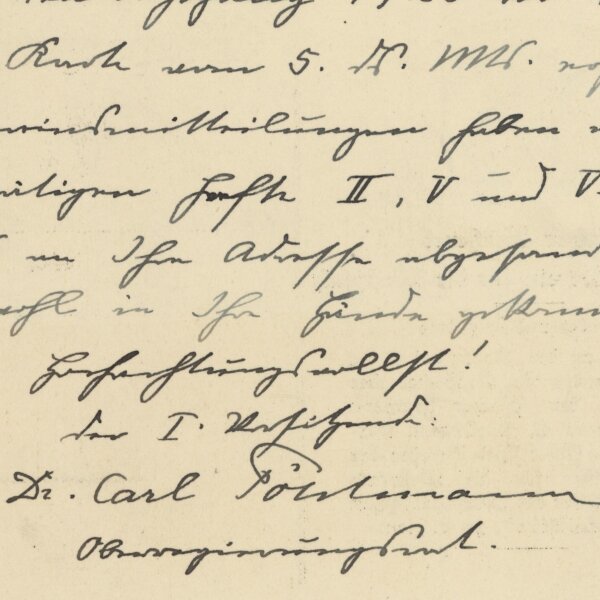 Karte vom 5. ds. Mts.
einsmitteilungen haben
Hefte II, V und V
an Ihre Adresse abgesand
wohl in Ihre Hände gekomm
Hochachtungsvollst!
der I. Vorsitzende:
Dr. Carl Pöhlmann
Oberregierungsrat.